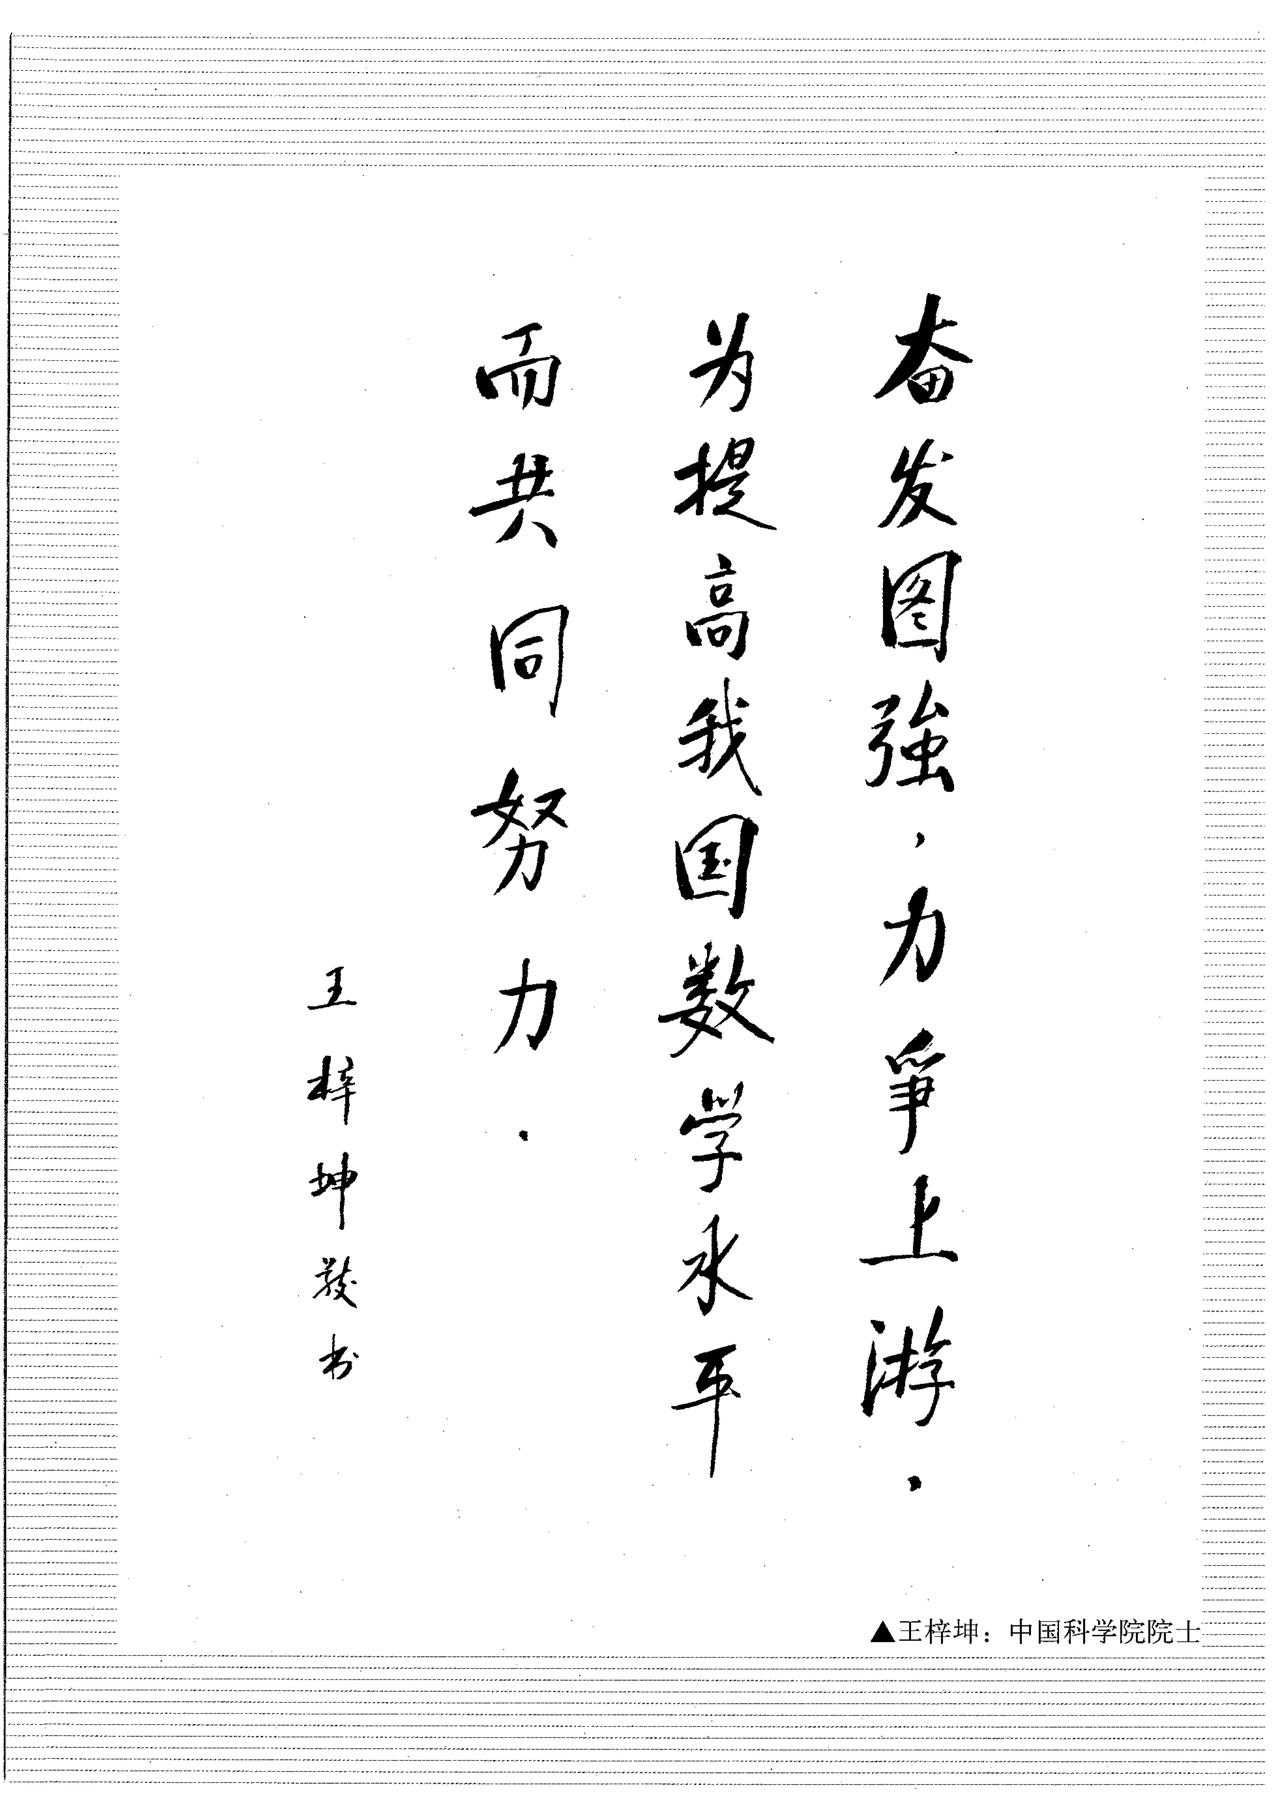 奋发图強，力争上游.
为提高我国数学水平
而共同努力.
王梓坤敬书
▲王梓坤：中国科学院院士